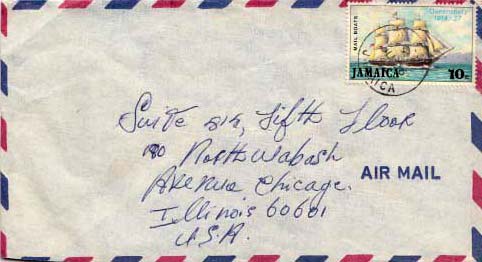 MAIL BOATS
Queensbury
1814-27
JAMAICA 10c
AICA
Suite 514, Fifth Floor
190 North Wabash
Avenue Chicago.
Illinois 60601
U.S.A.
AIR MAIL